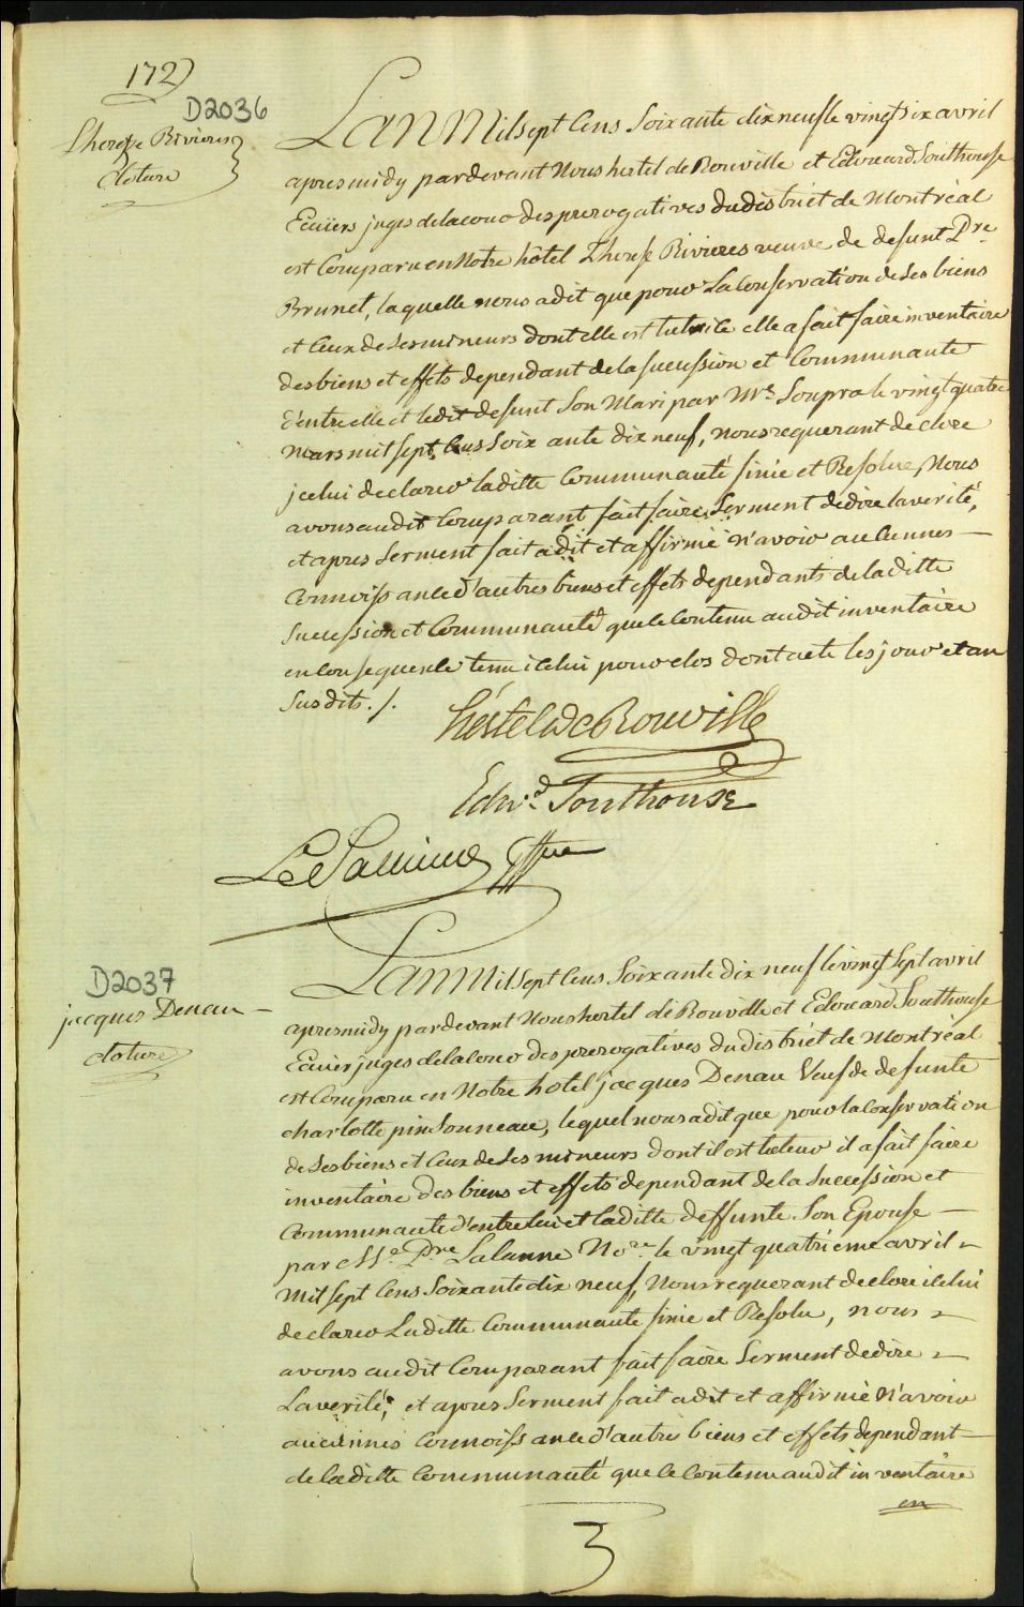 172
D2036
Therese Rivieres
cloture
L'an Mil sept Cens Soixante dix neuf le vingt six avril
apres midy pardevant Nous hertel de Rouville et Edouard Southouse
Ecuiiers juges de la cour des prerogatives du district de Montréal
est Comparu en Notre hôtel Therese Rivieres veuve de defunt Pre
Brunet, laquelle nous a dit que pour La Conservation de ses biens
et Ceux de Ses mineurs dont elle est tutrice elle a fait faire inventaire
des biens et effets dependant de la succession et Communauté
d'entre elle et ledit defunt Son Mari par Mre Soupra le vingt quatre
mars mil sept Cens Soixante dix neuf, nous requerant de clore
jcelui declarer laditte Communauté finie et Resolue, Nous
avons audit Comparant fait faire Serment de dire la verité,
et apres Serment fait a dit et affirmé n'avoir aucunnes
Connoissance d'autres biens et effets dependants de laditte
Succession et Communauté que le Contenu audit inventaire
en Consequence tenu icelui pour clos dont acte les jour et an
Susdits ./.
hertel de Rouville
Edwd Southouse
Le Saulnier Gffier
D2037
jacques Denau
cloture
L'an Mil Sept Cens Soixante Dix neuf le vingt Sept avril
apres midy pardevant Nous hertel de Rouville et Edouard Southouse
Ecuier juges de la Cour des prerogatives du district de Montréal
est Comparu en Notre hotel jacques Denau Veuf de defunte
charlotte pinsonneau, lequel nous a dit que pour la Conservation
de Ses biens et Ceux de Ses mineurs dont il est tuteur il a fait faire
inventaire des biens et effets dependant de la Succession et
Communauté d'entre lui et laditte deffunte Son Epouse
par Me Pre Lalanne Nore le vingt quatrieme avril
Mil sept Cens Soixante dix neuf, Nous requerant de clore icelui
declarer Laditte Communauté finie et Resolu, nous
avons audit Comparant fait faire Serment de dire
La verité, et apres Serment fait a dit et affirmé N'avoir
aucunnes Connoissance d'autre biens et effets dependant
de laditte Communauté que le Contenu audit inventaire
en
3